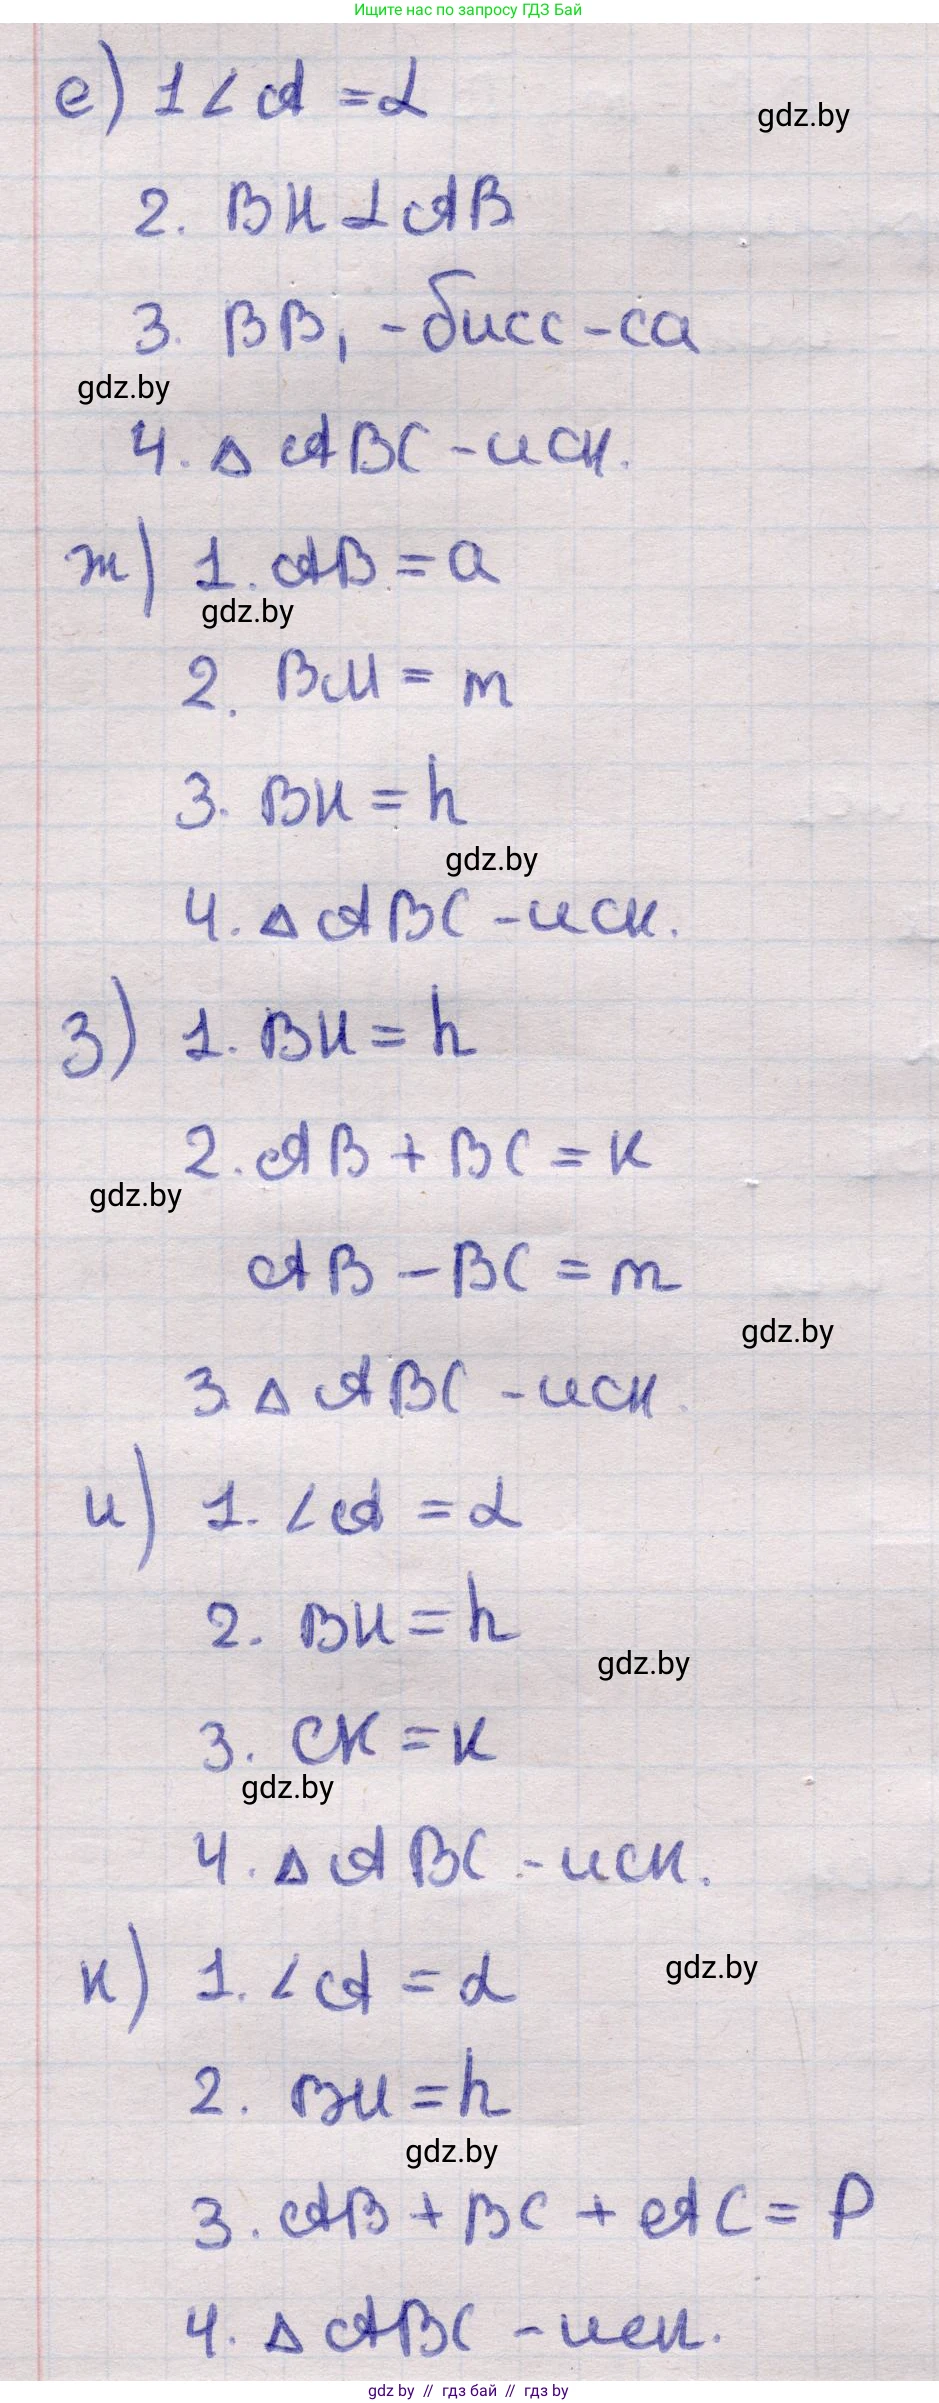 Ищите нас по запросу ГДЗ Бай
е) 1 ∠A = α
gdz.by
2. BH ⊥ AB
3. BB₁ - бисс-са
gdz.by
4. △ ABC - иск.
ж) 1. AB = a
gdz.by
2. BM = m
3. BH = h
gdz.by
4. △ ABC - иск.
з) 1. BH = h
2. AB + BC = к
gdz.by
AB - BC = m
gdz.by
3. △ ABC - иск.
и) 1. ∠A = α
2. BH = h
gdz.by
3. CK = к
gdz.by
4. △ ABC - иск.
к) 1. ∠A = α
gdz.by
2. BH = h
gdz.by
3. AB + BC + AC = P
4. △ ABC - иск.
gdz.by // гдз бай // гдз by